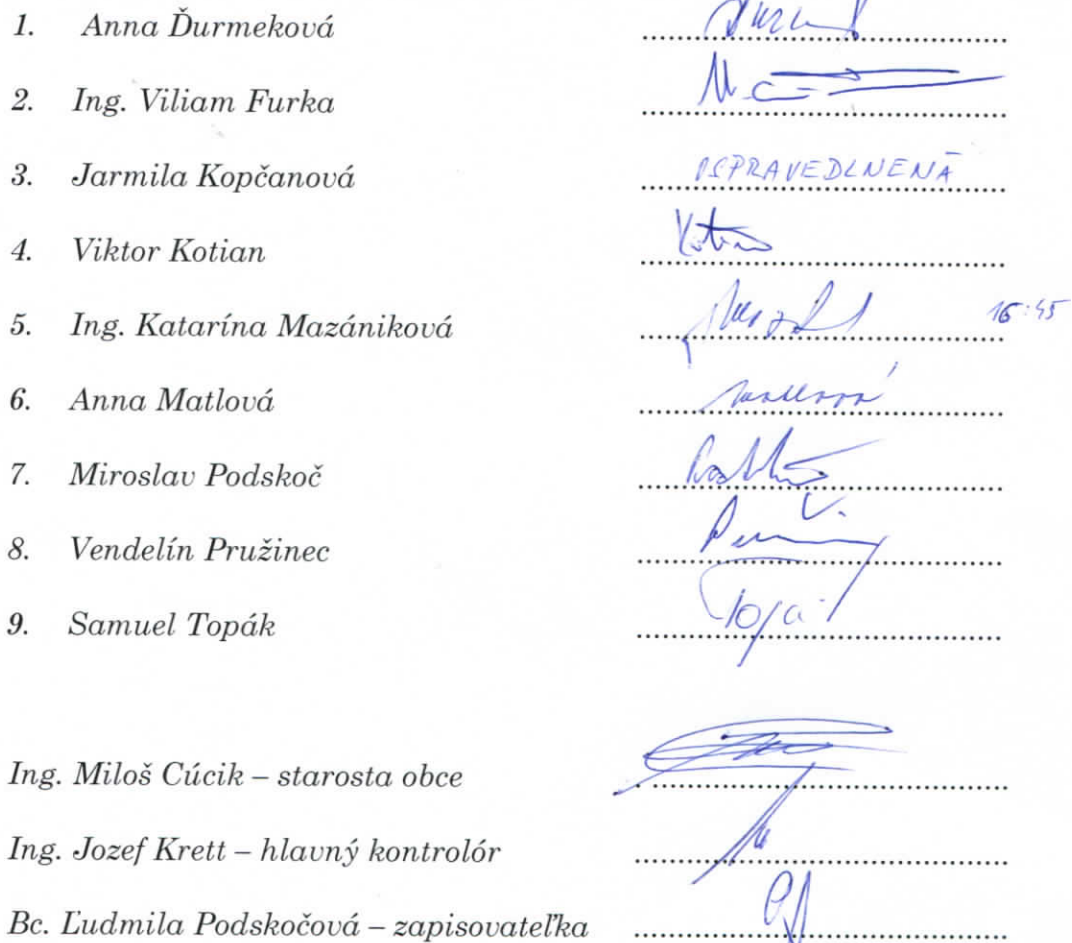 1. Anna Ďurmeková
2. Ing. Viliam Furka
3. Jarmila Kopčanová OSPRAVEDLNENÁ
4. Viktor Kotian
5. Ing. Katarína Mazániková 16:45
6. Anna Matlová
7. Miroslav Podskoč
8. Vendelín Pružinec
9. Samuel Topák
Ing. Miloš Cúcik – starosta obce
Ing. Jozef Krett – hlavný kontrolór
Bc. Ľudmila Podskočová – zapisovateľka